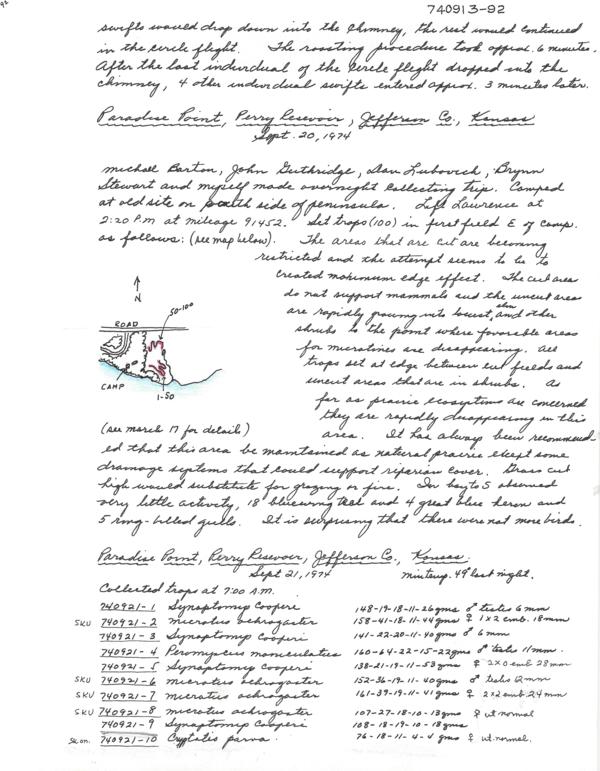 92
740913-92
swifts would drop down into the chimney, the rest would continued
in the circle flight. The roosting procedure took approx. 6 minutes.
After the last individual of the circle flight dropped into the
chimney, 4 other individual swifts entered approx. 3 minutes later.
Paradise Point, Perry Resevoir, Jefferson Co., Kansas
Sept. 20, 1974
Michael Barton, John Guthridge, Dan Lubovich, Brynn
Stewart and myself made overnight collecting trip. Camped
at old site on south side of peninsula. Left Lawrence at
2:20 P.M at mileage 91452. Set traps (100) in first field E of camp.
as follows: (see map below). The areas that are cut are becoming
restricted and the attempt seems to be to
created maximum edge effect. The cut area
do not support mammals and the uncut area
are rapidly growing into locust, elm and other
shrubs to the point where favorable areas
for microtines are disappearing. All
traps set at edge between cut fields and
uncut areas that are in shrubs. As
far as prairie ecosystems are concerned
they are rapidly disappearing in this
area. It has always been recommend-
N
50-100
ROAD
CAMP
1-50
(see march 17 for detail)
ed that this area be maintained as natural prairie except some
drainage systems that could support riperian cover. Grass cut
high would substitute for grazing or fire. In bay to S observed
very little activity, 18 bluewing teal and 4 great blue heron and
5 ring-billed gulls. It is surprising that there were not more birds.
Paradise Point, Perry Resevoir, Jefferson Co., Kansas.
Sept 21, 1974 min temp. 49° last night.
Collected traps at 7:00 A.M.
740921-1 Synaptomys Cooperi 148-19-18-11-26gms ♂ testes 6 mm
SKU 740921-2 Microtus ochrogaster 158-41-18-11-44gms ♀ 1x2 emb. 18mm
740921-3 Synaptomys Cooperi 141-22-20-11-40gms ♂ 6 mm
740921-4 Peromyscus maniculatus 160-64-22-15-22gms ♂ testes 11mm.
740921-5 Synaptomys Cooperi 138-21-19-11-53gms ♀ 2x0 emb 23mm
SKU 740921-6 microtus ochrogaster 152-36-19-11-40gms ♂ testes 12mm
SKU 740921-7 microtus ochrogaster 161-39-19-11-41gms ♀ 2x2 emb 24mm
SKU 740921-8 microtus ochrogaster 107-27-18-10-13gms ♀ ut normal
740921-9 Synaptomys Cooperi 108-18-19-10-18gms
740921-10 Cryptotis parva. 76-18-11-4-4gms ♀ ut. normal.